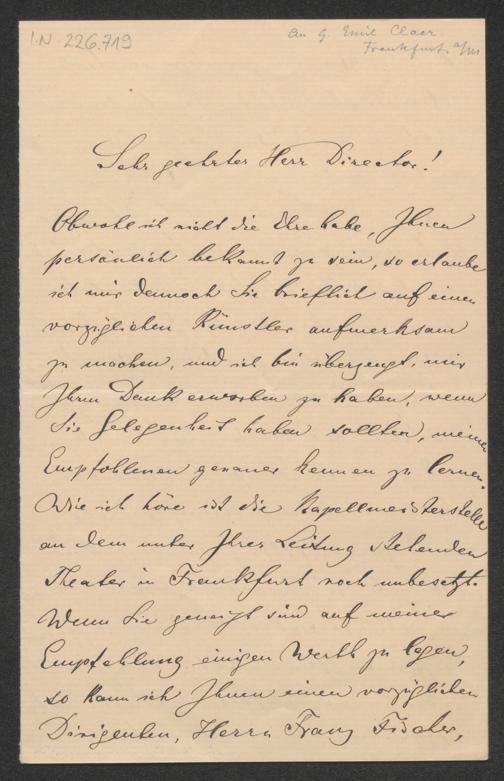 I.N. 226.719
An G. Emil Claar
Frankfurt a/M
Sehr geehrter Herr Director!
Obwohl ich nicht die Ehre habe, Ihnen
persönlich bekannt zu sein, so erlaube
ich mir dennoch Sie brieflich auf einen
vorzüglichen Künstler aufmerksam
zu machen, und ich bin überzeugt, mir
Ihren Dank erworben zu haben, wenn
Sie Gelegenheit haben sollten, meinen
Empfohlenen genauer kennen zu lernen.
Wie ich höre ist die Kapellmeisterstelle
an dem unter Ihrer Leitung stehenden
Theater in Frankfurt noch unbesetzt.
Wenn Sie geneigt sind auf meine
Empfehlung einigen Werth zu legen,
so kann ich Ihnen einen vorzüglichen
Dirigenten, Herrn Franz Fischer,